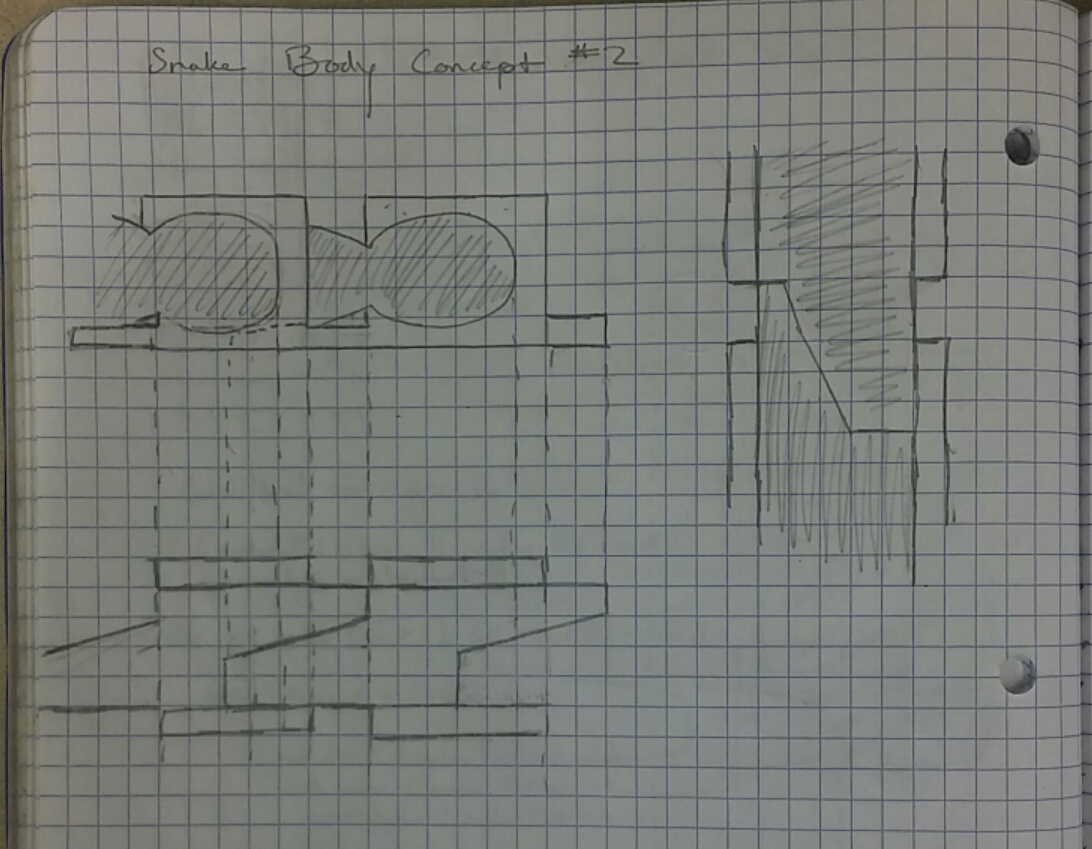 Snake Body Concept #2